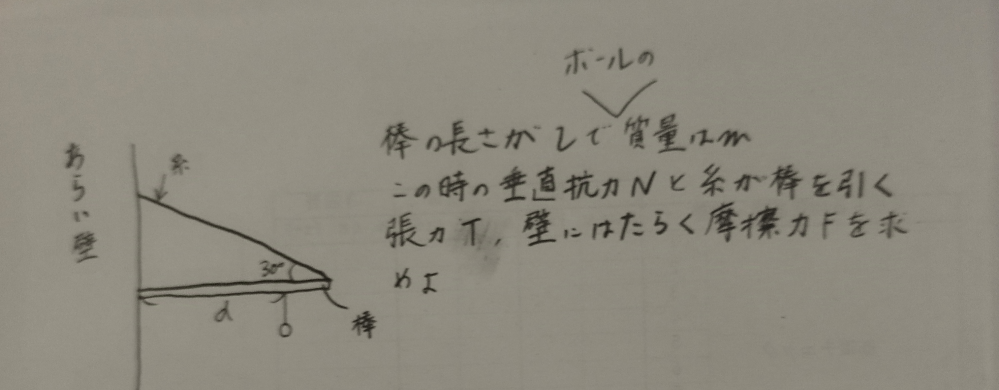 ボールの
棒の長さがlで質量はm
この時の垂直抗力Nと糸が棒を引く
張力T,壁にはたらく摩擦力Fを求
めよ
あらい壁
糸
30°
d
棒